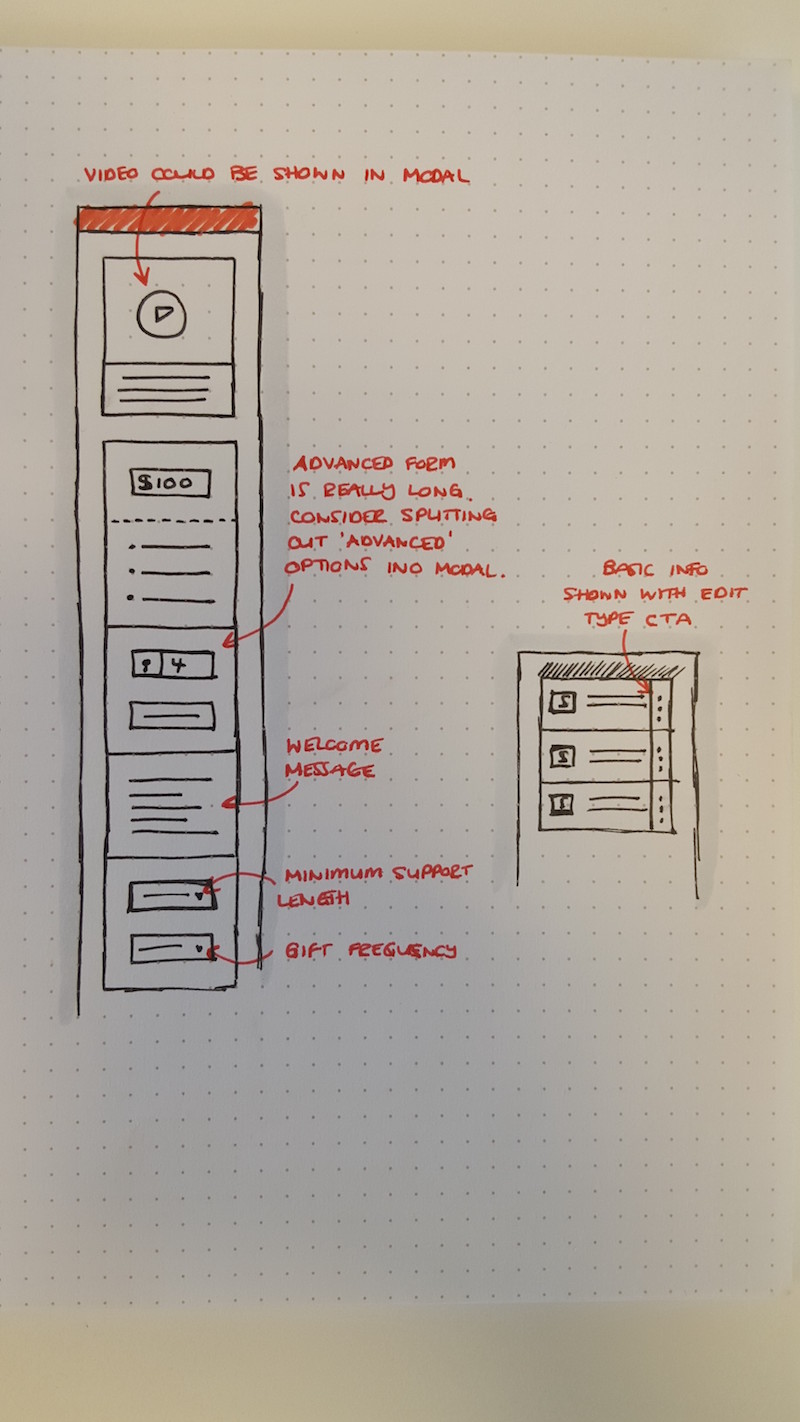 VIDEO COULD BE SHOWN IN MODAL
$100
ADVANCED FORM
IS REALLY LONG.
CONSIDER SPLITTING
OUT 'ADVANCED'
OPTIONS INO MODAL.
4
WELCOME
MESSAGE
MINIMUM SUPPORT
LENGTH
GIFT FREQUENCY
BASIC INFO
SHOWN WITH EDIT
TYPE CTA
S
S
S